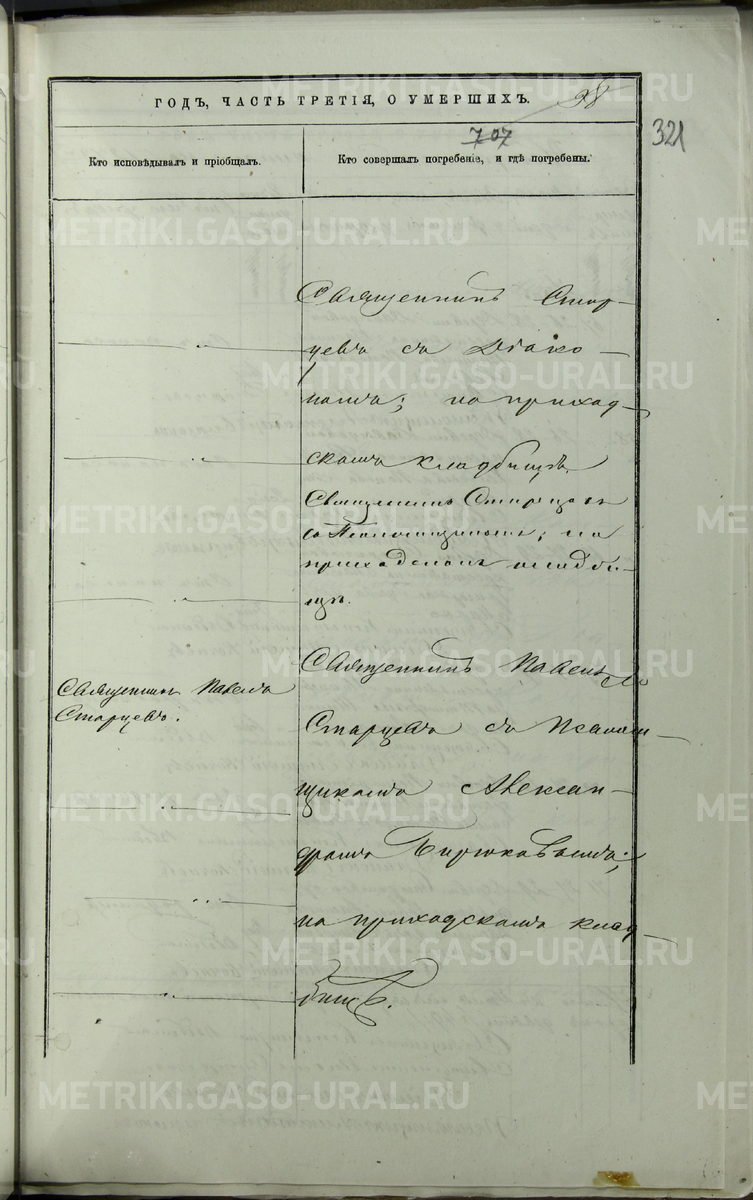 ГОДЪ, ЧАСТЬ ТРЕТІЯ, О УМЕРШИХЪ.
707
321
Кто исповѣдывалъ и пріобщалъ.
Кто совершалъ погребеніе, и гдѣ погребены.
Священникъ Стар-
цевъ съ Діако-
номъ; на приход-
скомъ кладбищѣ.
Священникъ Старцевъ
съ Псаломщикомъ; на
приходскомъ кладби-
щѣ.
Священникъ Павелъ
Старцевъ.
Священникъ Павелъ
Старцевъ съ Псалом-
щикомъ Алексан-
дромъ Бирюковымъ;
на приходскомъ клад-
бищѣ.
METRIKI.GASO-URAL.RU